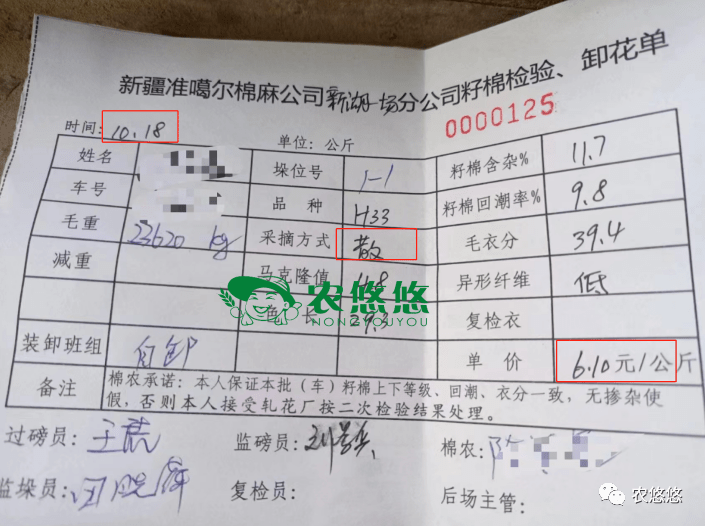 新疆准噶尔棉麻公司新湖一场分公司籽棉检验、卸花单
0000125
时间: 10.18
单位: 公斤
姓名 垛位号 1-1 籽棉含杂% 11.7
车号 品种 H33 籽棉回潮率% 9.8
毛重 23620 kg 采摘方式 散 毛衣分 39.4
减重 马克隆值 4.8 异形纤维 低
色 长 29.3 复检衣
装卸班组 自卸 单价 6.10元/公斤
备注 棉农承诺: 本人保证本批(车)籽棉上下等级、回潮、衣分一致, 无掺杂使
假, 否则本人接受轧花厂按二次检验结果处理。
过磅员: 监磅员: 棉农:
监垛员: 复检员: 后场主管:
农悠悠
NONGYOUYOU
农悠悠